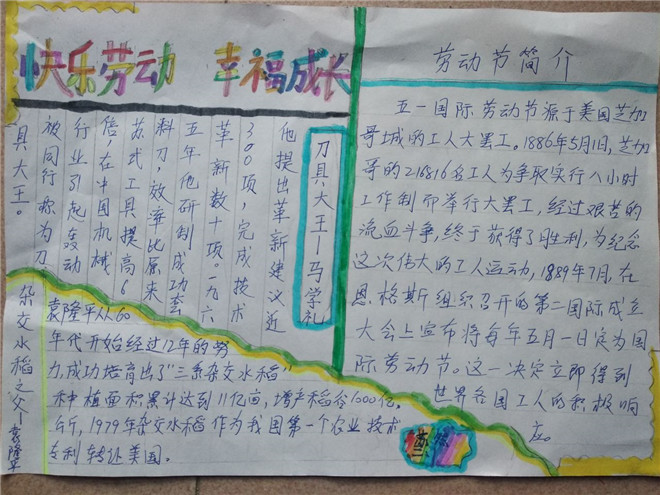 快乐劳动 幸福成长
刀具大王—马学礼
他提出革新建议近
300项,完成技术
革新数十项。一九六
五年他研制成功套
料刀,效率比原来
苏式工具提高6
倍,在中国机械
行业引起轰动
被同行称为刀
具大王。
杂交水稻之父—袁隆平
袁隆平从60
年代开始经过12年的努
力,成功培育出了"三系杂交水稻"
种植面积累计达到11亿亩,增产稻谷1000亿
公斤,1979年杂交水稻作为我国第一个农业技术
专利转让美国。
劳动节简介
五一国际劳动节源于美国芝加
哥城的工人大罢工。1886年5月1日,芝加
哥的216816名工人为争取实行八小时
工作制而举行大罢工,经过艰苦的
流血斗争,终于获得了胜利,为纪念
这次伟大的工人运动,1889年7月,在
恩格斯组织召开的第二国际成立
大会上宣布将每年五月一日定为国
际劳动节。这一决定立即得到
世界各国工人的积极响
应。